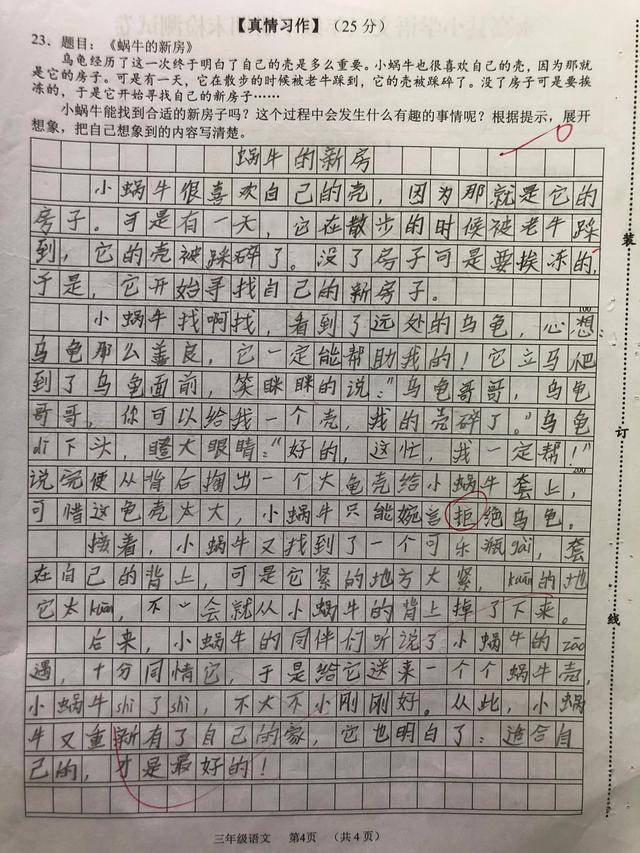 【真情习作】(25分)
23. 题目：《蜗牛的新房》
乌龟经历了这一次终于明白了自己的壳是多么重要。小蜗牛也很喜欢自己的壳，因为那就
是它的房子。可是有一天，它在散步的时候被老牛踩到，它的壳被踩碎了。没了房子可是要挨
冻的，于是它开始寻找自己的新房子……
小蜗牛能找到合适的新房子吗？这个过程中会发生什么有趣的事情呢？根据提示，展开
想象，把自己想象到的内容写清楚。
蜗牛的新房
小蜗牛很喜欢自己的壳，因为那就是它的
房子。可是有一天，它在散步的时候被老牛踩
到，它的壳被踩碎了。没了房子可是要挨冻的，
于是，它开始寻找自己的新房子。
100
小蜗牛找啊找，看到了远处的乌龟，心想：
乌龟那么善良，它一定能帮助我的！它立马爬
到了乌龟面前，笑眯眯的说：“乌龟哥哥，乌龟
哥哥，你可以给我一个壳，我的壳碎了。”乌龟
dī下头，瞪大眼睛：“好的，这忙，我一定帮！”
200
说完便从背后掏出一个大龟壳给小蜗牛套上，
可惜这龟壳太大，小蜗牛只能婉言拒绝乌龟。
接着，小蜗牛又找到了一个可乐瓶gài，套
在自己的背上，可是它紧的地方太紧，kuān的地
它太kuān，不一会就从小蜗牛的背上掉了下来。
后来，小蜗牛的同伴们听说了小蜗牛的zāo
遇，十分同情它，于是给它送来一个个蜗牛壳，
小蜗牛shì了shì，不大不小刚刚好。从此，小蜗
牛又重新有了自己的家，它也明白了：适合自
己的，才是最好的！
三年级语文 第4页 （共4页）
装
订
线